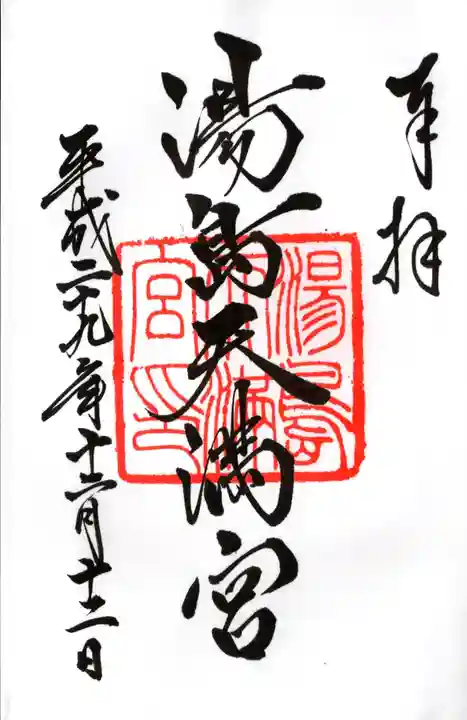 奉拝
湯島天満宮
湯島天満宮印
平成二十九年十二月十二日